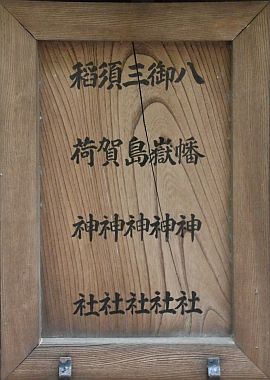 八幡神社
御嶽神社
三島神社
須賀神社
稲荷神社